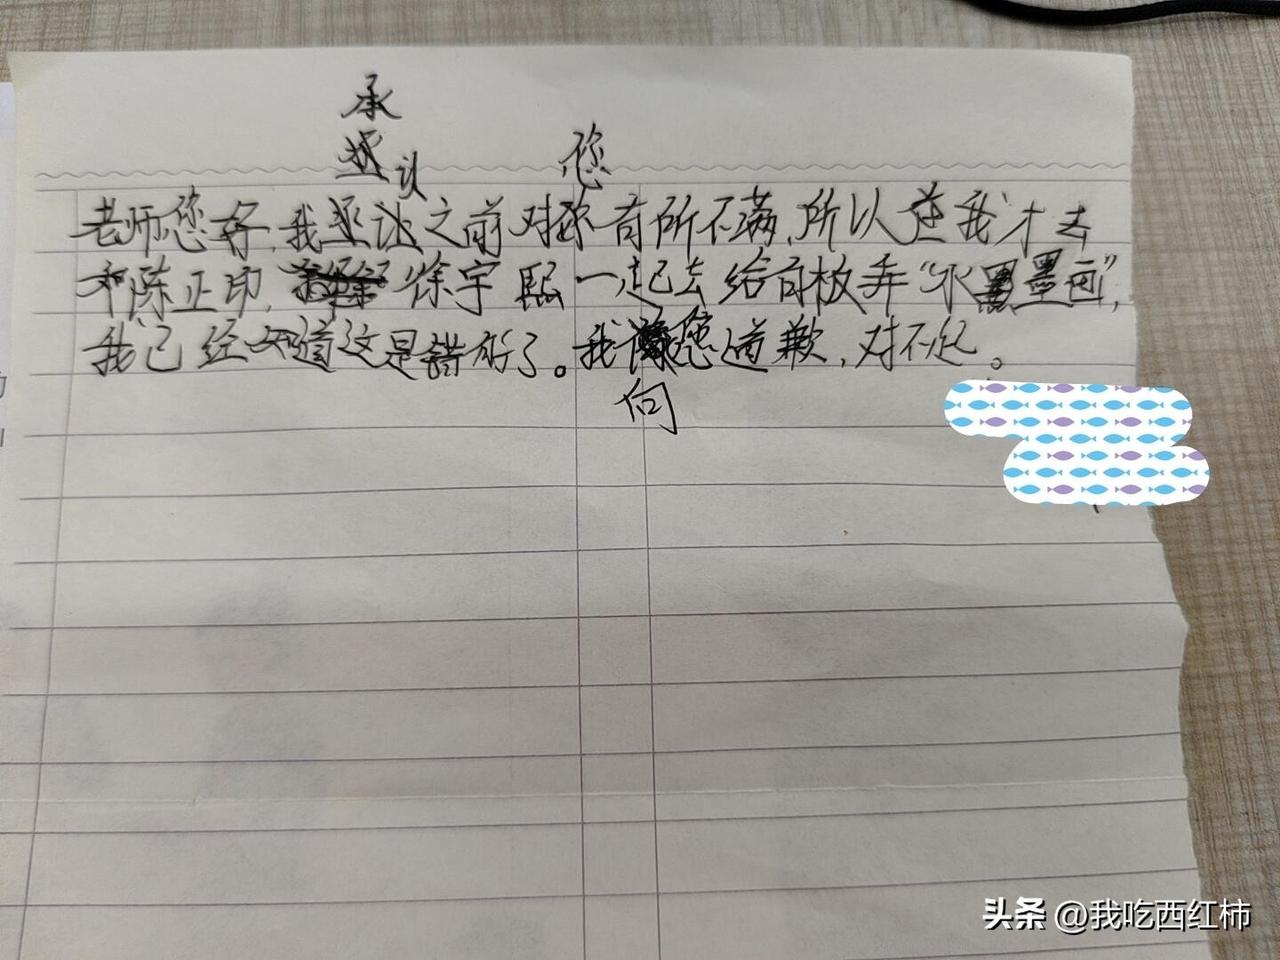 承
认
您
老师您好,我 之前对你有所不满,所以 我才去
和陈正印, 徐宇熙一起去给白板弄“水墨画”,
我已经知道这是错的了。我 您道歉,对不起。
向
头条 @我吃西红柿